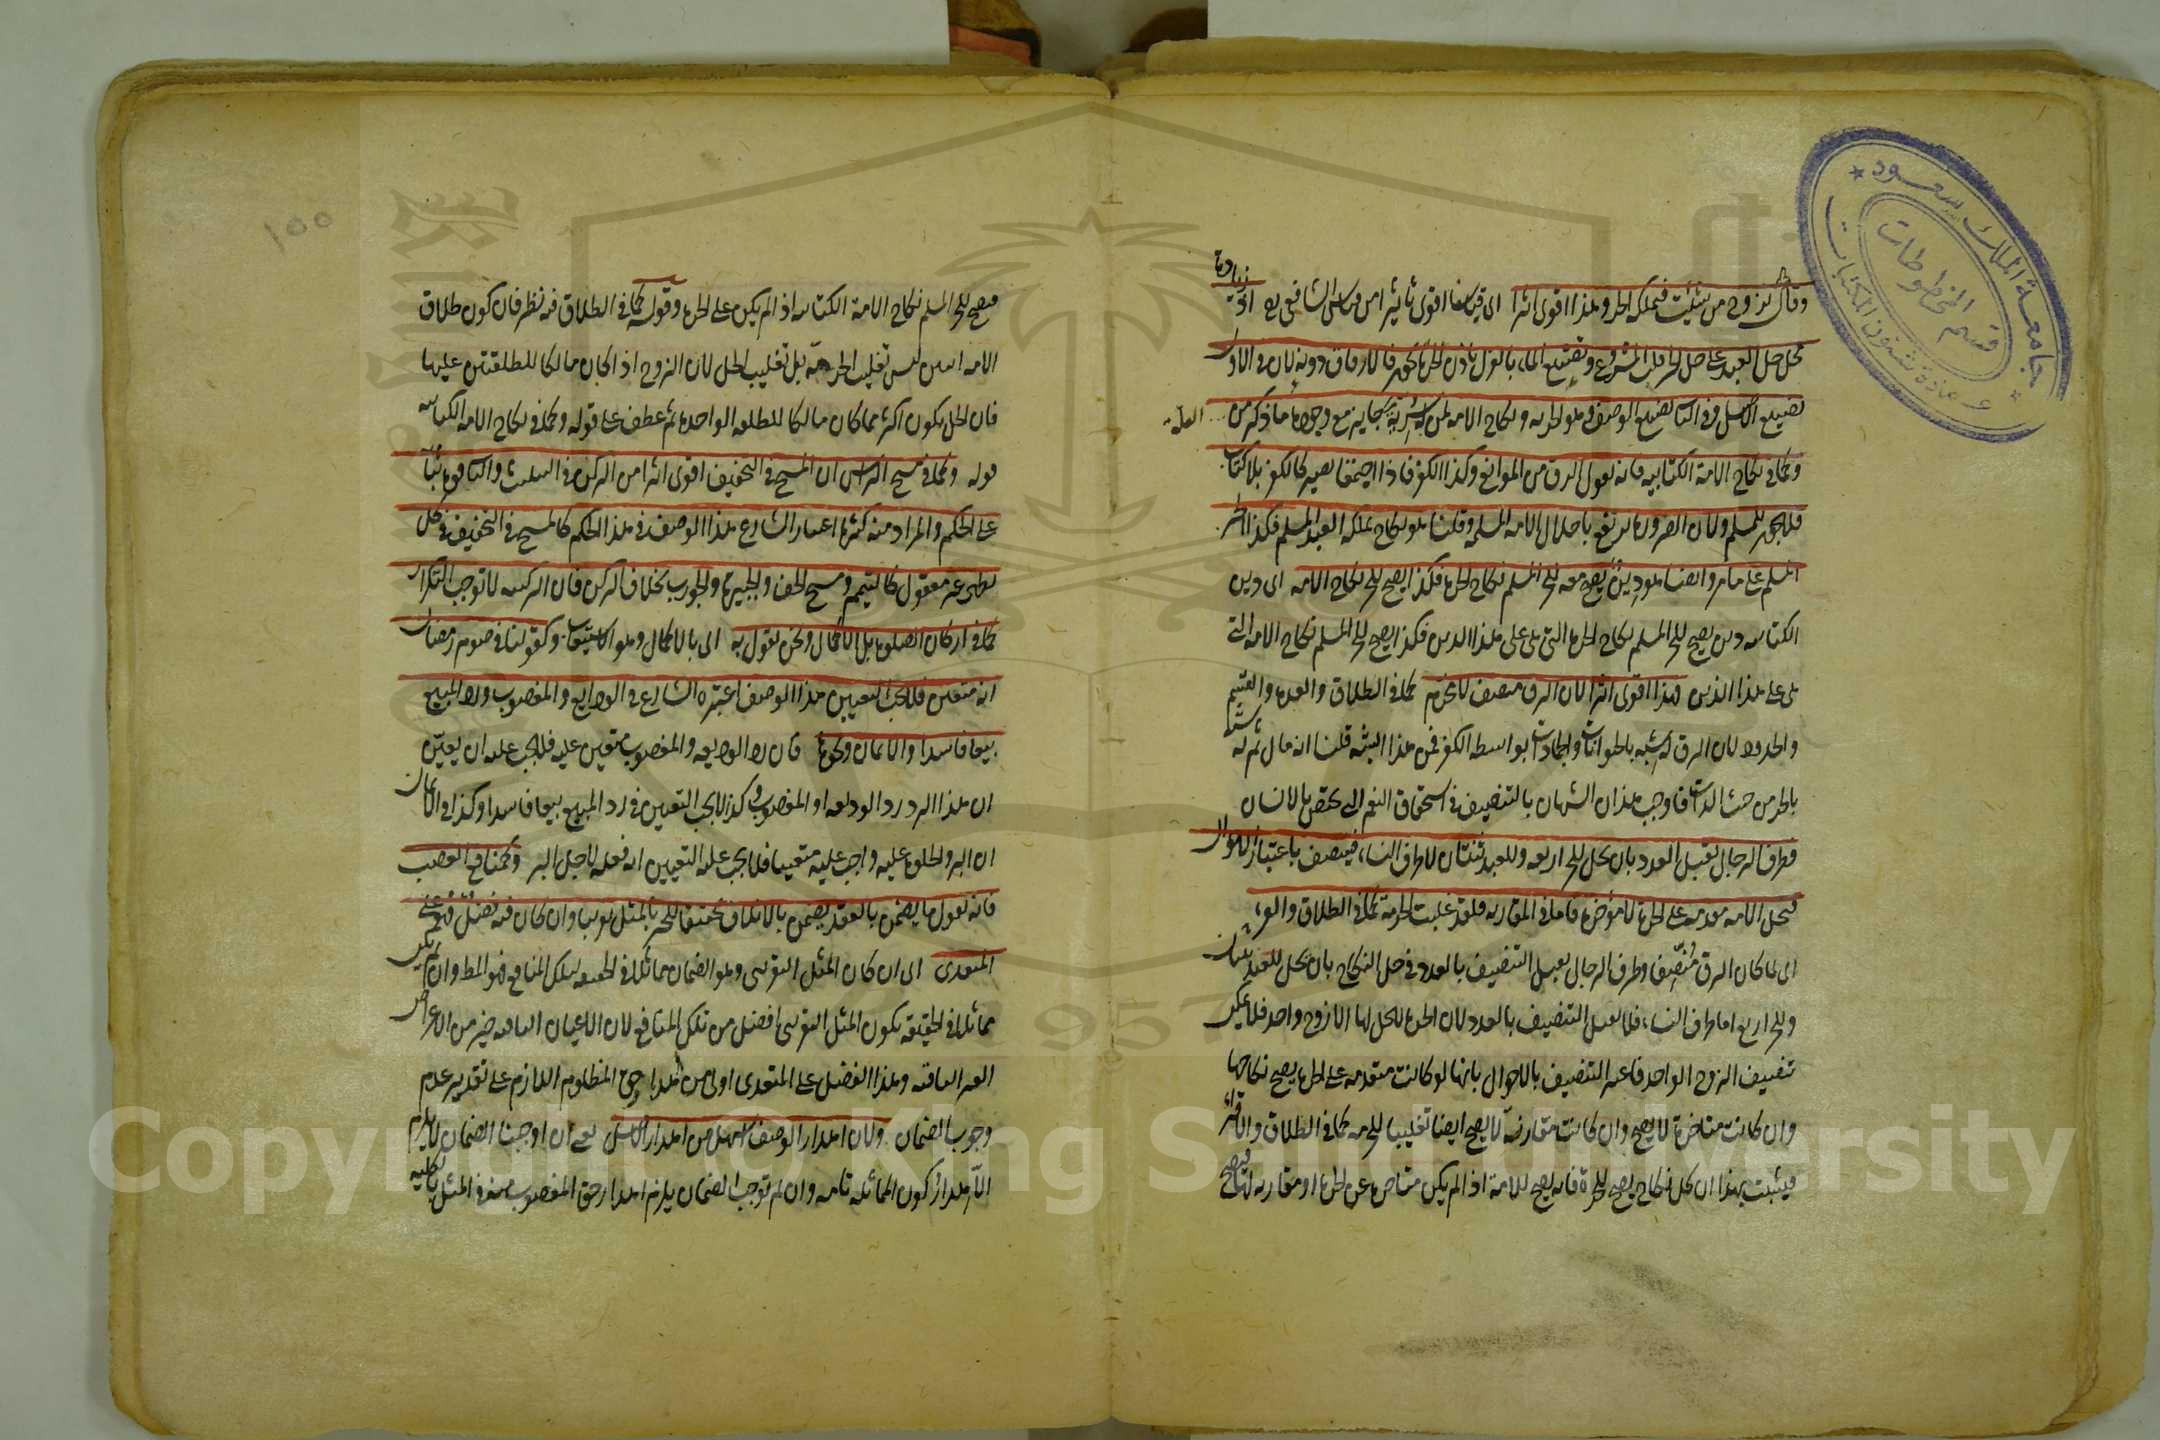 وقال تزوج من شئت فيملكه الحر وهذا اقوى اثرا اى قياسنا اقوى تأثيرا من قياس الشافعى اذ زيادة
محل حل العبد على حل الحر قلب المشروع وتضييع الماء بالعزل باذن الحرة يجوز فالارقاق دونه لان فى الاول
تضييع الاصل وفى الثانى تضييع الوصف وهو الحرية ونكاح الامة لمن له سرية جايز مع وجود ما ذكر من العلة
وكما فى نكاح الامة الكتابية فانه يقول الرق من الموانع وكذا الكفر فاذا اجتمعا يصير كالكفر بلا كتاب
فلا يجوز للمسلم ولان الضرورة ترتفع باحلال الامة المسلمة وقلنا هو نكاح يملكه العبد المسلم فكذا الحر
المسلم على ما مر وايضا هو دين يصح معه للحر المسلم نكاح الحرة فكذا يصح للحر نكاح الامة اى دين
الكتابية دين يصح للحر المسلم نكاح الحرة التى هى على هذا الدين فكذا يصح للحر المسلم نكاح الامة التى
هى على هذا الدين فهذا اقوى اثرا لان الرق منصف لا محرم كما فى الطلاق والعدة والقسم
والحدود لان الرق له شبه بالحيوانات والجمادات بواسطة الكفر فمن هذا الشبه قلنا انه مال ثم له شبه
بالحر من حيث الذات فاوجب هذان الشبهان بالتنصيف فى استحقاق النعم التى تختص بالانسان
فطرف الرجال يقبل العدد بان يحل للحر اربعة وللعبد ثنتان لا طرف النساء فينصف باعتبار الاحوال
فتحل الامة مقدمة على الحرة لا مؤخرة فاما فى المقارنة فلقد غلبت الحرمة كما فى الطلاق والقرء
اى لما كان الرق منصفا وطرف الرجال يقبل التنصيف بالعدد فى حل النكاح بان يحل للعبد ثنتان
وللحر اربع اما طرف النساء فلا يقبل التنصيف بالعدد لان الحرة لا يحل لها الا زوج واحد فلا يمكن
تنصيف الزوج الواحد فاعتبر التنصيف بالاحوال بانها لو كانت متقدمة على الحرة يصح نكاحها
وان كانت متاخرة لا يصح وان كانت مقارنة لا يصح ايضا تغليبا للحرمة كما فى الطلاق والاقراء
فيثبت بهذا ان كل نكاح يصح للحرة فانه يصح للامة اذا لم يكن متاخرة عن الحرة او مقارنة لها
فيصح للحر المسلم نكاح الامة الكتابية اذا لم يكن على الحرة وقوله كما فى الطلاق فيه نظر فان كون طلاق
الامة اثنين ليس تغليب الحرمة بل تغليب الحل لان الزوج اذا كان مالكا للطلقتين عليها
فان الحل يكون اكثر مما كان مالكا للطلقة الواحدة ثم عطف على قوله وكما فى نكاح الامة الكتابية
قوله وكما فى مسح الراس ان المسح فى التخفيف اقوى اثرا من الركن فى التثليث والثانى قوة ثباته
على الحكم والمراد منه كثرة اعتبار الشارع هذا الوصف فى هذا الحكم كالمسح فى التخفيف فى كل
تطهير غير معقول كالتيمم ومسح الخف والجبيرة والجورب بخلاف الركن فان الركنية لا توجب التكرار
كما فى اركان الصلوة بل الاكمال ونحن نقول به اى بالاكمال وهو الاستيعاب وكقولنا فى صوم رمضان
انه متعين فلا يجب التعيين هذا الوصف اعتبره الشارع فى الودايع والمغصوب ورد المبيع
بيعا فاسدا والايمان ونحوها فان رد الوديعة والمغصوب متعين عليه فلا يجب عليه ان يعين
ان هذا الرد رد الوديعة او المغصوب وكذا لا يجب التعيين فى رد المبيع بيعا فاسدا وكذا فى الايمان
ان البر والحلوة عليه واجب عليه متعينا فلا يجب عليه التعيين انه فعله لاجل البر وكمنافع الغصب
فانه يقول ما يضمن بالعقد يضمن بالاتلاف تحقيقا للجبر بالمثل تقريبا وان كان فيه فضل فهو على
المتعدى اى ان كان المثل التقريبى وهو الضمان مماثلا فى الحقيقة لتلك المنافع فهو المط وان لم يكن
مماثلا فى الحقيقة يكون المثل التقريبى افضل من تلك المنافع لان الاعيان الباقية خير من الاعراض
الغير الباقية وهذا الفضل على المتعدى اولى من اهدار حق المظلوم اللازم على تقدير عدم
وجوب الضمان ولان اهدار الوصف اسهل من اهدار الاصل يعنى ان اوجبنا الضمان لا يلزم
الا اهدار كون المماثلة تامة وان لم توجب الضمان يلزم اهدار حق المغصوب منه فى المثل بالكلية
١٥٥
جامعة الملك سعود
قسم المخطوطات
عمادة شئون المكتبات
Copyright © King Saud University
1957